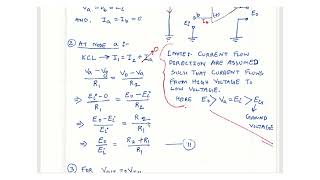 Va = Vb = 0
AND, Ia = Ib = 0
② AT NODE a :-
KCL → I1 = I2 + Ia 0
Va - Vi / R1 = Vo - Va / R2
⇒ Ei - 0 / R1 = Eo - Ei / R2
⇒ Eo - Ei / Ei = R2 / R1
⇒ Eo / Ei = R2 + R1 / R1 — ⑪
[NOTE: CURRENT FLOW
DIRECTION ARE ASSUMED
SUCH THAT CURRENT FLOWS
FROM HIGH VOLTAGE TO
LOW VOLTAGE.
HERE Eo > Va = Ei > EG
GROUND
VOLTAGE
Ei
Eo
③ FOR